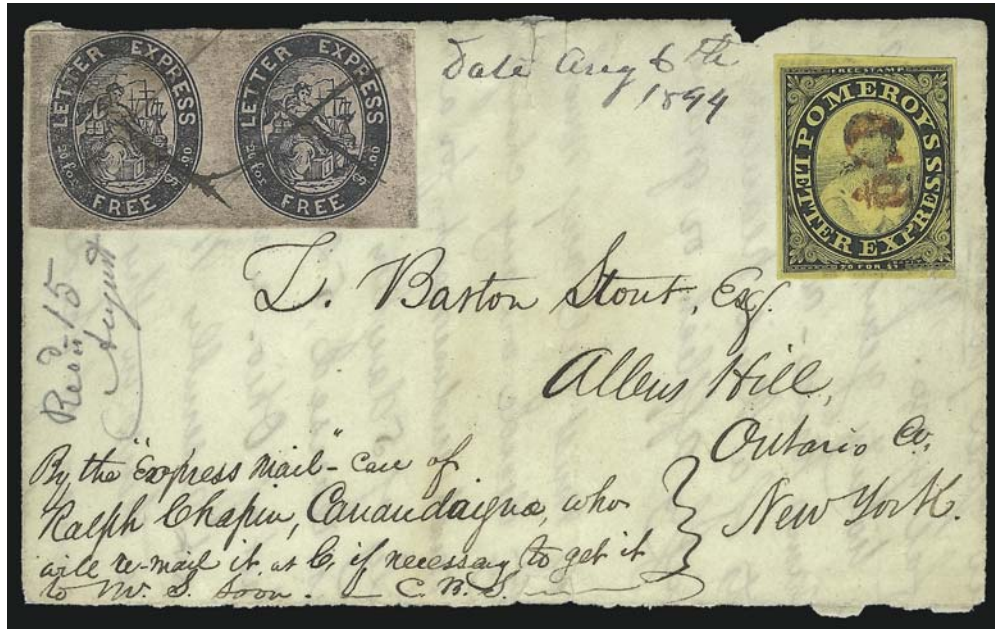 LETTER EXPRESS
20 for $1.00
FREE
LETTER EXPRESS
20 for $1.00
FREE
Date Aug 6th
1844
FREE STAMP
POMEROY'S
LETTER EXPRESS
20 FOR $1
L. Barton Stout, Esq.
Allens Hill,
Ontario Co.
New York.
Recd. 15
August
By the "Express Mail" - care of
Ralph Chapin, Canandaigua, who
will re-mail it at C. if necessary to get it
to Mr. S. soon. — C. B. S.